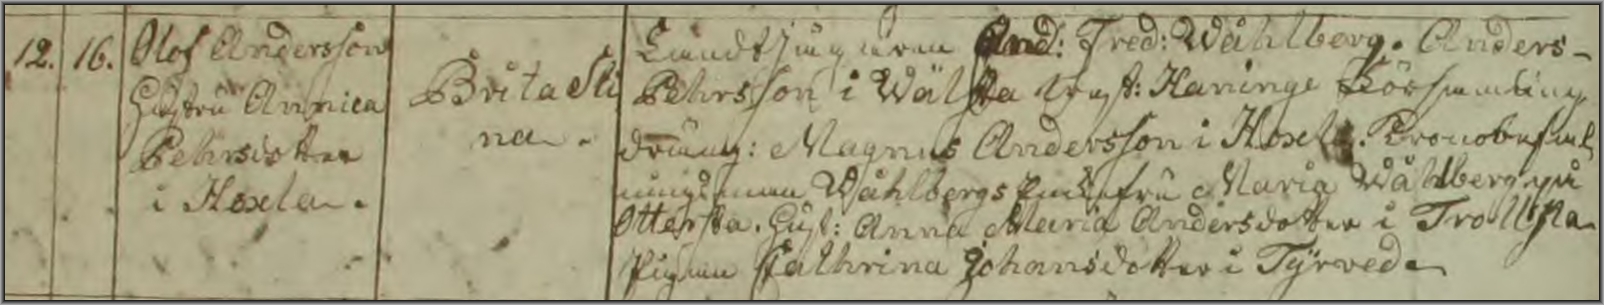 12. 16. Olof Andersson
Hustru Annica
Pehrsdotter
i Hoxla.
Brita Sti
na.
And: Fred: Wåhlberg. Anders
Pehrsson i Wälsta Haninge Församling
dräng: Magnus Andersson i Hoxla. Kronobefall
ningsman Wåhlbergs fru Maria Wåhlberg på
Ottersta. Hust: Anna Maria Andersdotter i Trollsta
Pigan Cathrina Johansdotter i Tyrved